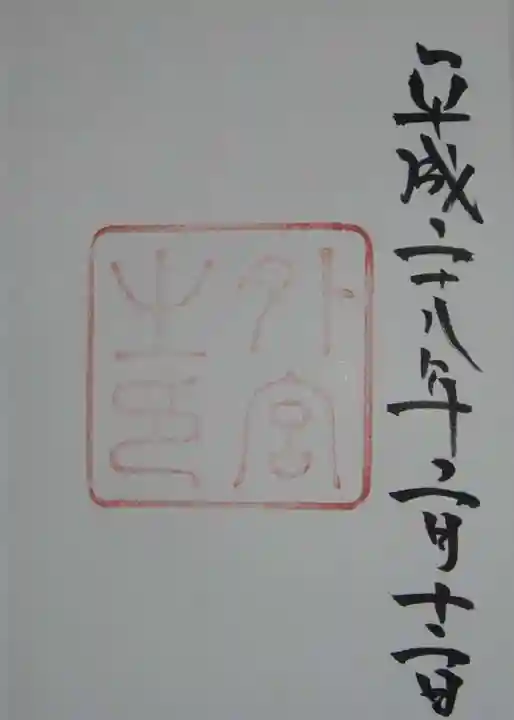 平成二十八年二月十二日
外宮
之印